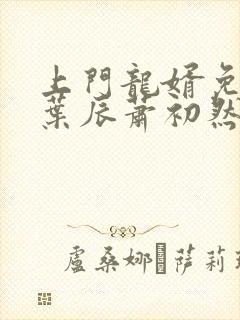 上門龍婿免
葉辰蕭初然
盧桑娜·萨莉瑪